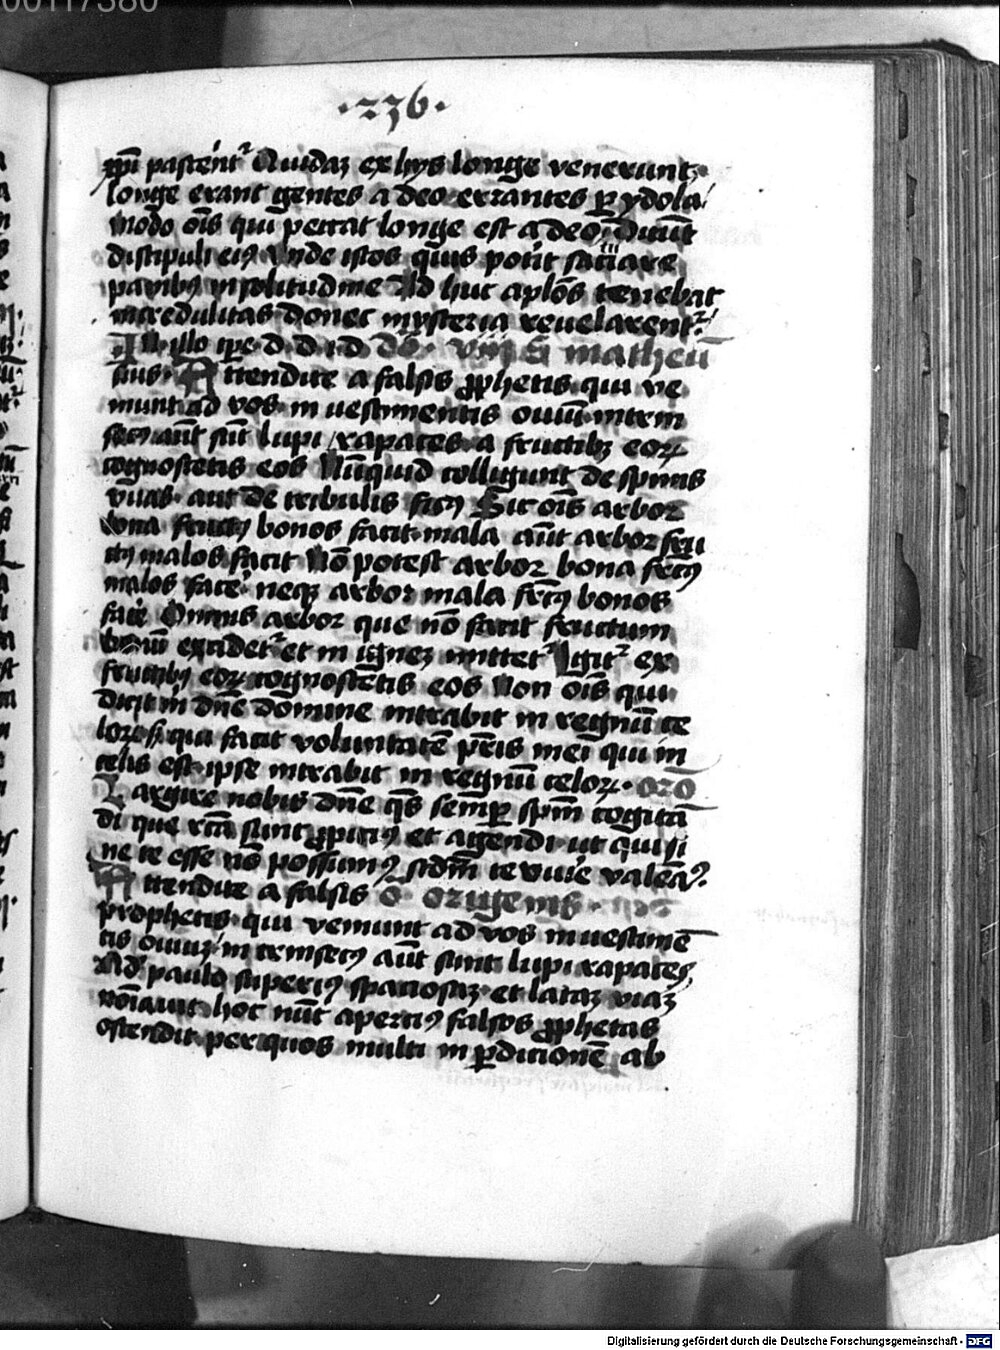 00117380
·236·
xpi pascent᷑ Quidaꝫ ex hys longe venerunt·
longe erant gentes a deo errantes ꝑ ydola
modo oīs qui peccat longe est a deo Dicūt
discipuli eiꝯ Vnde istos quis pot́it saciare
panibꝯ in solitudine Ad huc aplōs tenebat
incredulitas donec mysteria reuelarent᷑
In illo tꝑe d d i d dō· viij S matheū
suis· Attendite a falsis ꝓphetis qui ve
niunt ad vos in uestimentis ouiū intrin
secꝯ aūt sūt lupi rapaces a fructibꝫ eoꝝ
cognoscetis eos Nūquid colligunt de spinis
vuas aut de tribulis ficꝯ Sic oīs arbor
bona fructꝯ bonos facit mala aūt arbor fru
ctꝯ malos facit Nō potest arbor bona frctꝯ
malos face᷑ neqꝫ arbor mala frctꝯ bonos
face᷑ Omnis arbor que nō facit fructum
bonū excidet᷑ et in igneꝫ mittet᷑ Igit᷑ ex
fructibꝯ eoꝝ cognoscetis eos Non oīs qui
dicit m̄ dn̄e domine intrabit in regnū ce
loꝝ sꝫ qui facit voluntatē pr̄is mei qui in
celis est ipse intrabit in regnū celoꝝ· orō
Largire nobis dn̄e qs̄ semꝑ spm̄ cogitā
di que rc̄ā sunt ꝓpiciꝯ et agendi ut qui si
ne te esse nō possumꝯ scdm̄ te viue᷑ valeaꝯ
Attendite a falsis O· origenis·
prophetis qui veniunt ad vos in uestimē
tis ouiuꝫ intrinsecꝯ aūt sunt lupi rapaces
Ad paulo superiꝯ spaciosaꝫ et lataꝫ viaꝫ
noīauit hoc nūc aperciꝯ falsos ꝓphetas
ostendit per quos multi in ꝑdicionē ab
Digitalisierung gefördert durch die Deutsche Forschungsgemeinschaft - DFG